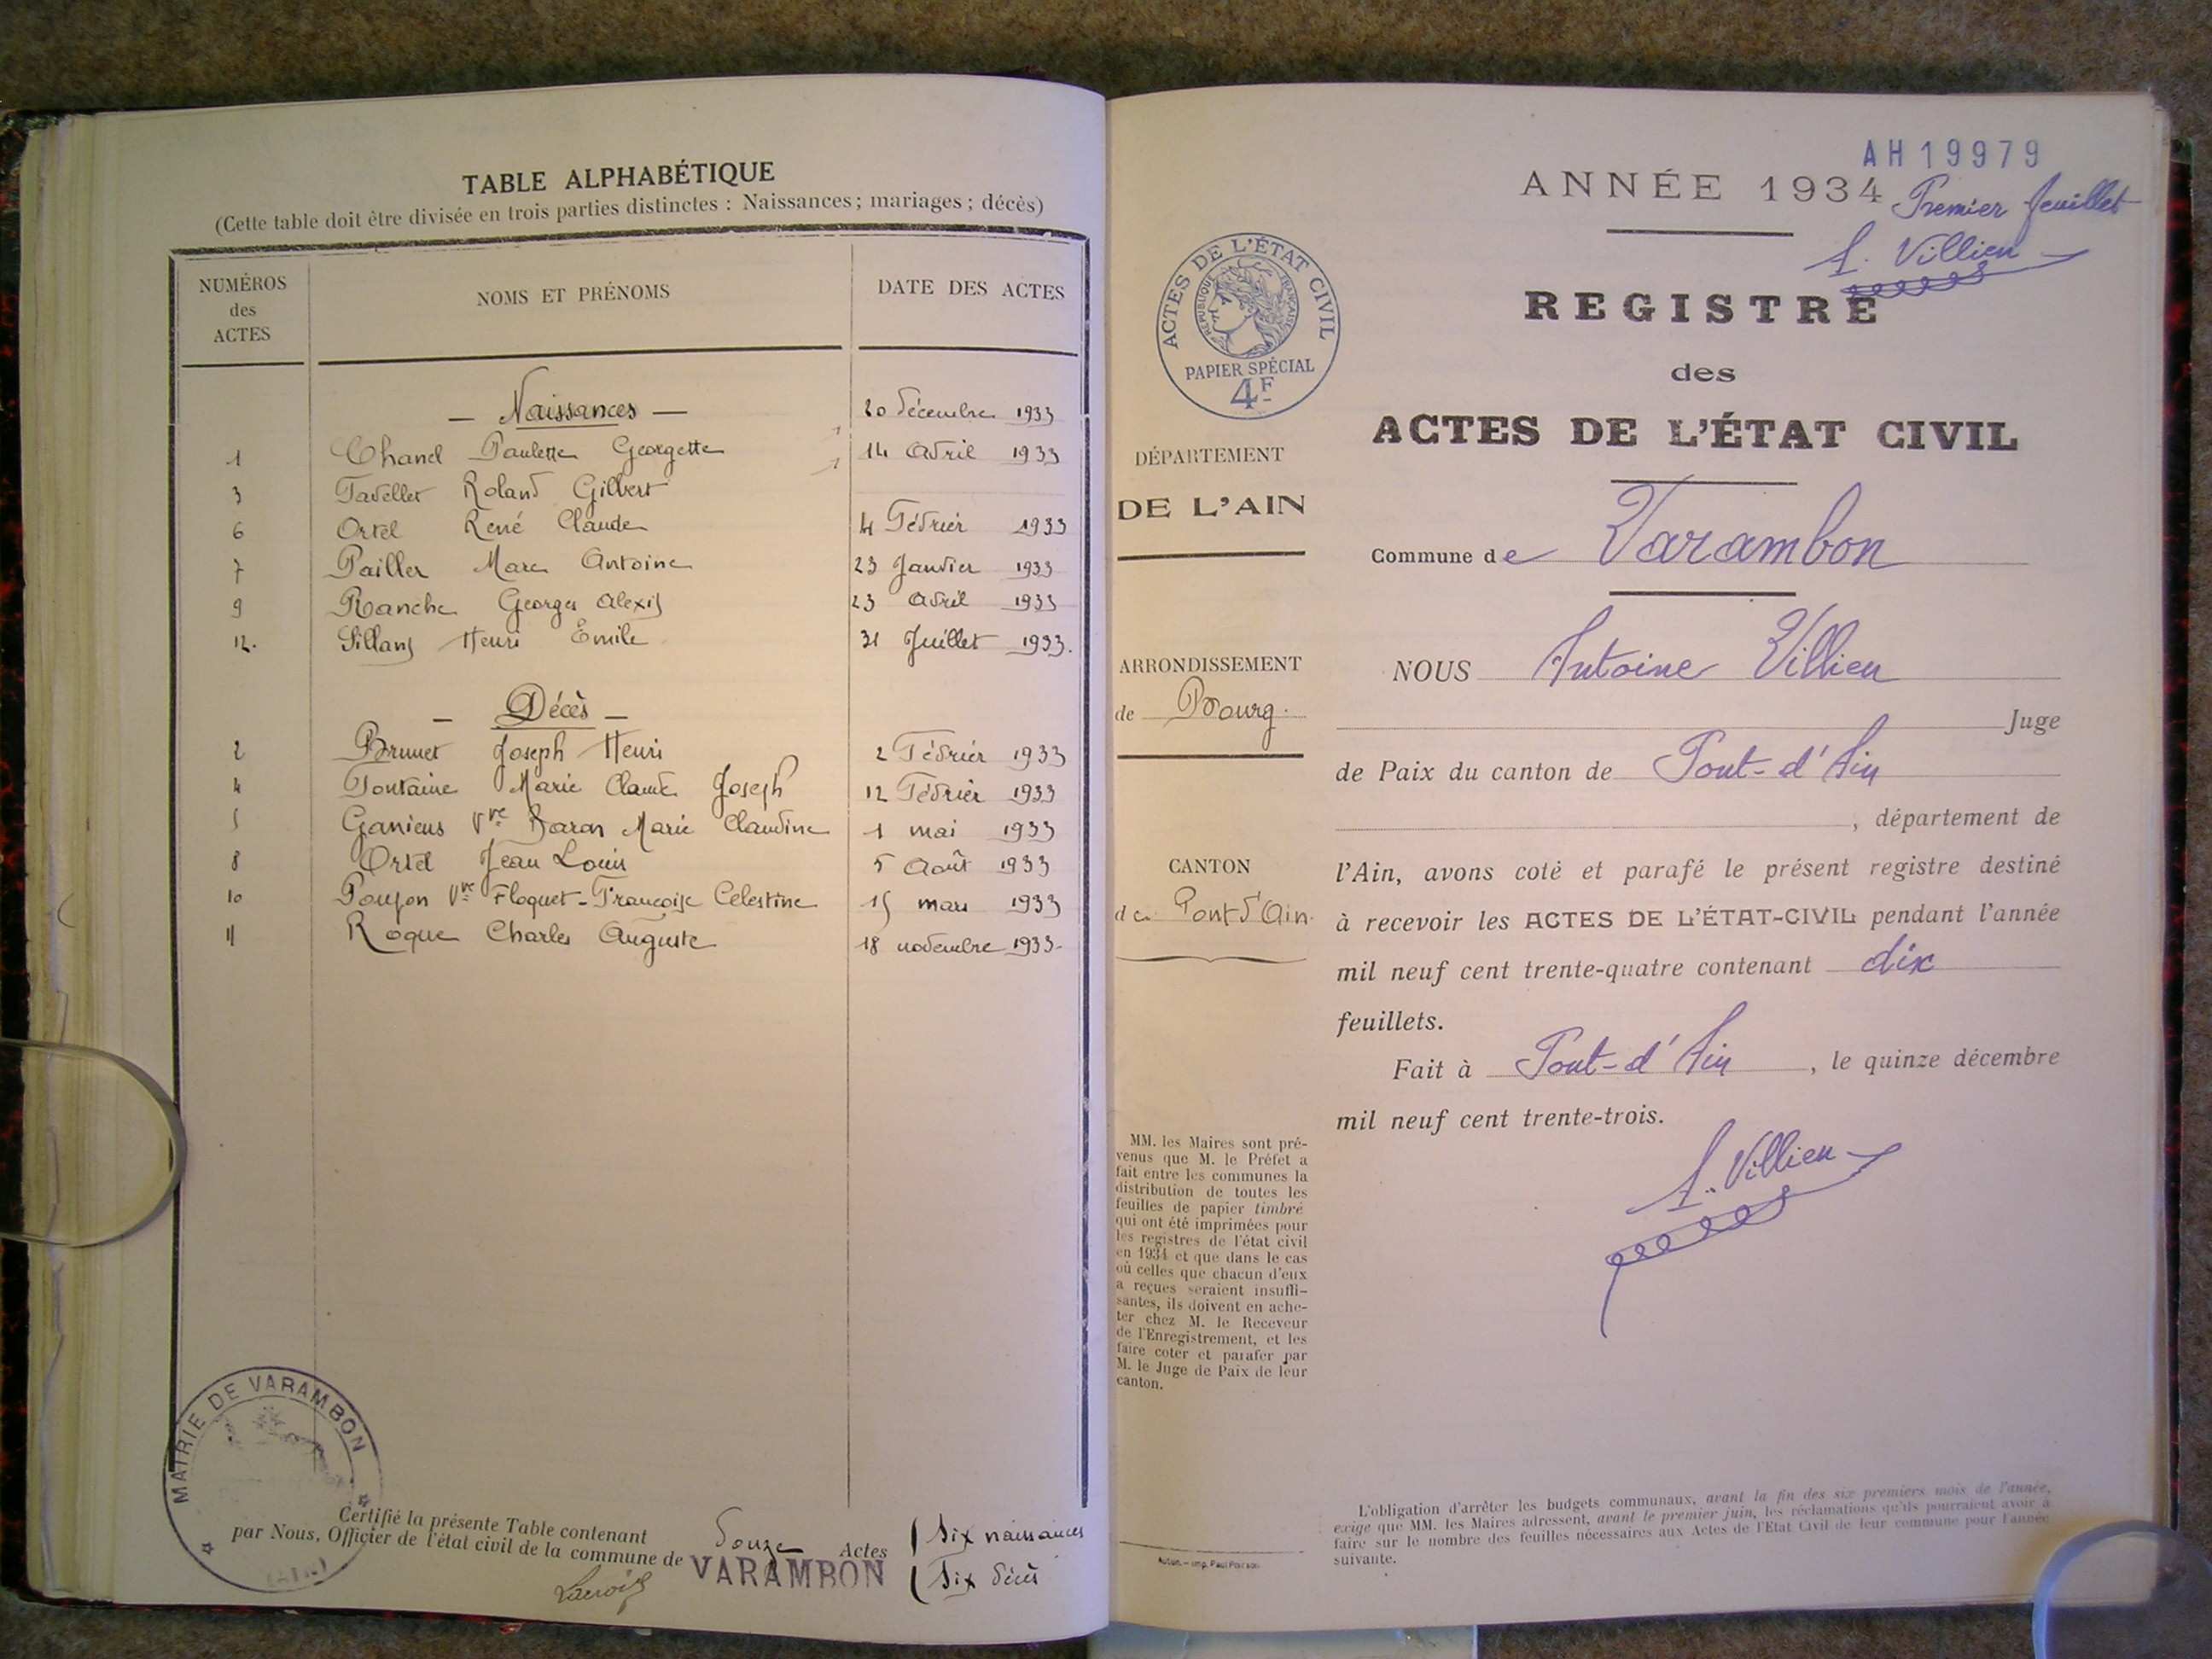 TABLE ALPHABÉTIQUE
(Cette table doit être divisée en trois parties distinctes : Naissances ; mariages ; décès)
NUMÉROS des ACTES NOMS ET PRÉNOMS DATE DES ACTES
— Naissances — 20 décembre 1933
1 Chanel Paulette Georgette 14 Avril 1933
3 Favellet Roland Gilbert
6 Ortel René Claude 4 Février 1933
7 Pailler Marc Antoine 23 Janvier 1933
9 Ranche Georges Alexis 23 Avril 1933
12. Sillans Henri Émile 31 Juillet 1933.
— Décès —
2 Brunet Joseph Henri 2 Février 1933
4 Fontaine Marie Claude Joseph 12 Février 1933
5 Vve Baron Marie Claudine 1 mai 1933
8 Ortel Jean Louis 5 Août 1933
10 Poujon Vve Floquet - Françoise Célestine 15 mars 1933
11 Roque Charles Auguste 18 novembre 1933.
MAIRIE DE VARAMBON
Certifié la présente Table contenant Douze Actes ( Six naissances
par Nous, Officier de l'état civil de la commune de VARAMBON ( Six décès
Lacroix
AH19979
ANNÉE 1934
Premier feuillet
A. Villien
ACTES DE L'ÉTAT CIVIL
REPUBLIQUE FRANÇAISE
PAPIER SPÉCIAL
4F
REGISTRE
des
ACTES DE L'ÉTAT CIVIL
DÉPARTEMENT
DE L'AIN
Commune de Varambon
ARRONDISSEMENT
de Bourg.
CANTON
de Pont d'Ain.
NOUS Antoine Villien
Juge
de Paix du canton de Pont-d'Ain
, département de
l'Ain, avons coté et parafé le présent registre destiné
à recevoir les ACTES DE L'ÉTAT-CIVIL pendant l'année
mil neuf cent trente-quatre contenant dix
feuillets.
Fait à Pont-d'Ain, le quinze décembre
mil neuf cent trente-trois.
A. Villien
MM. les Maires sont pré-
venus que M. le Préfet a
fait entre les communes la
distribution de toutes les
feuilles de papier timbré
qui ont été imprimées pour
les registres de l'état civil
en 1934 et que dans le cas
où celles que chacun d'eux
a reçues seraient insuffi-
santes, ils doivent en ache-
ter chez M. le Receveur
de l'Enregistrement, et les
faire coter et parafer par
M. le Juge de Paix de leur
canton.
Autun. — Imp. Paul Poirson
L'obligation d'arrêter les budgets communaux, avant la fin des six premiers mois de l'année,
exige que MM. les Maires adressent, avant le premier juin, les réclamations qu'ils pourraient avoir à
faire sur le nombre des feuilles nécessaires aux Actes de l'Etat Civil de leur commune pour l'année
suivante.